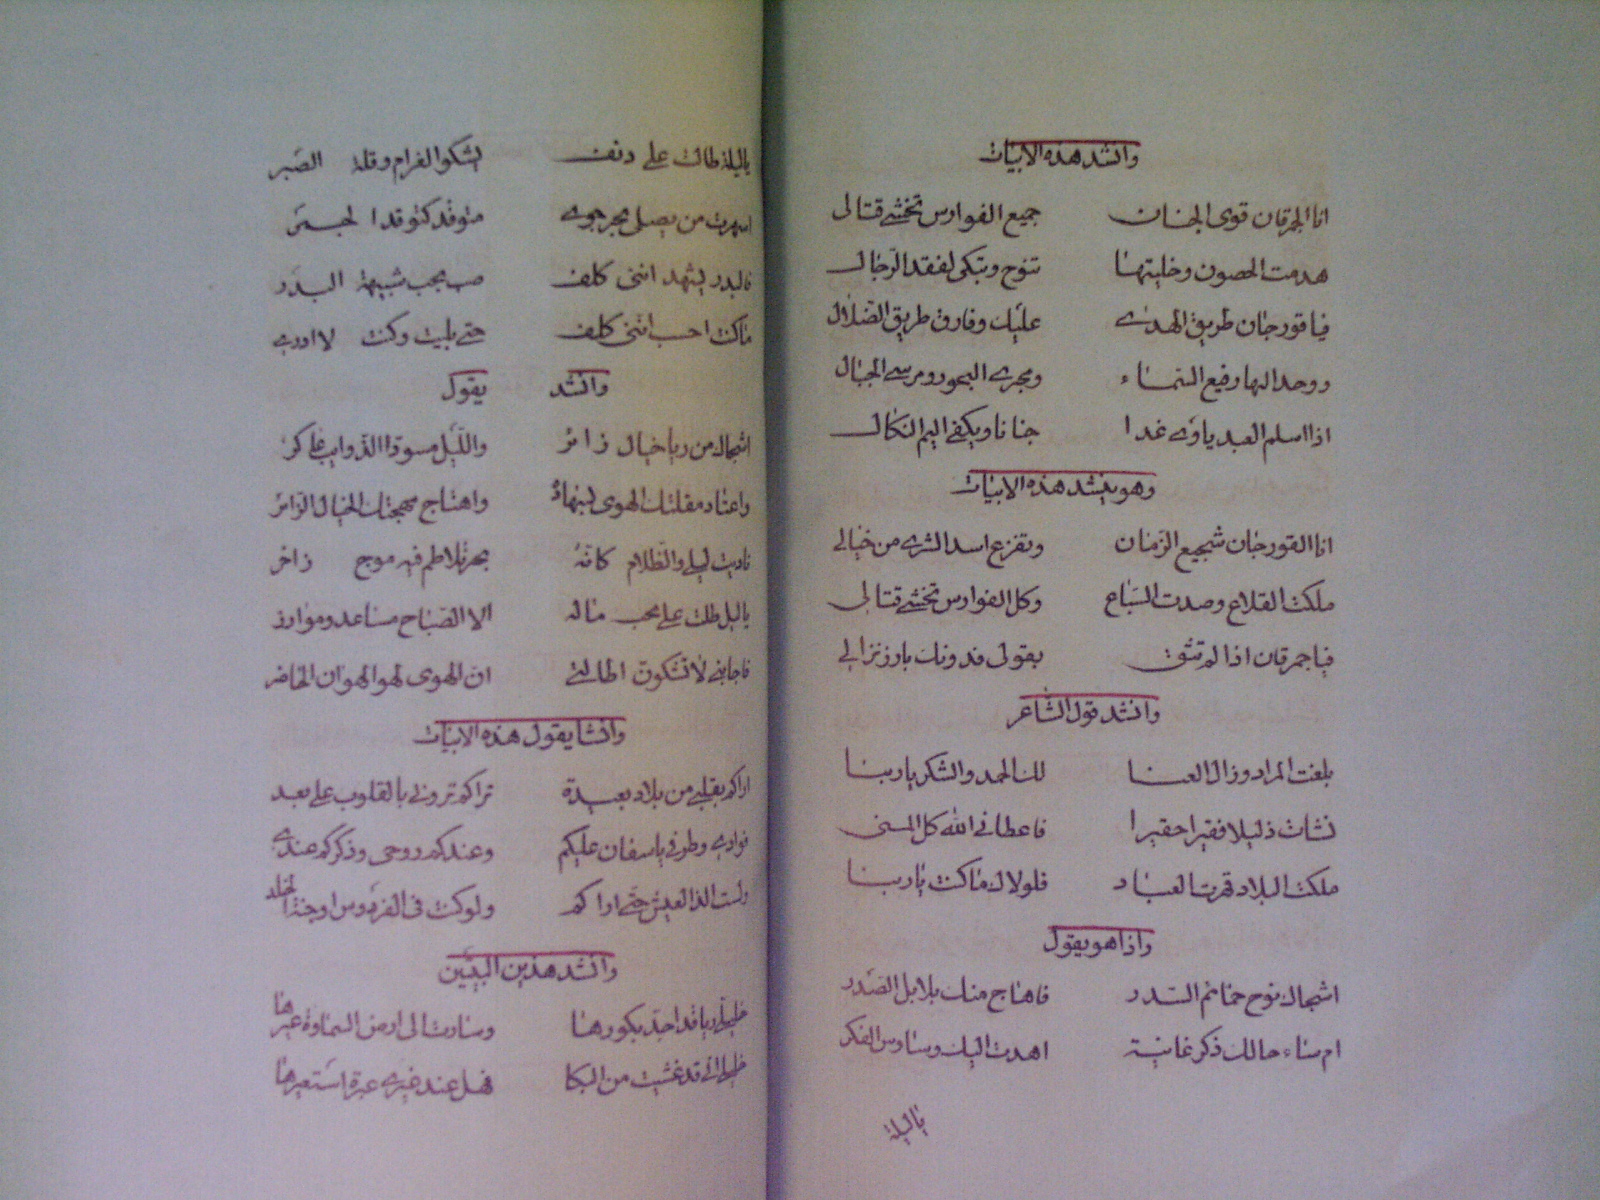 وانشد هذه الابيات
انا الجمرقان قوى الجنان جميع الفوارس تخشى قتالى
هدمت الحصون وخليتها تنوح وتبكى لفقد الرجال
فيا قورجان طريق الهدى عليك وفارق طريق الضلال
ووحد الها رفيع السماء ومجرى البحور ومرسى الجبال
اذا اسلم العبد ياوى غدا جنانا ويكفى اليم النكال
وهو ينشد هذه الابيات
انا القورجان شجيع الزمان وتفزع اسد الشرى من خيالى
ملكت القلاع وصدت السباع وكل الفوارس تخشى قتالى
فيا جمرقان اذا لم تثق بقولى فدونك بارز نزالى
وانشد قول الشاعر
بلغت المراد وزال العنا لك الحمد والشكر يا ربنا
نشات ذليلا فقيرا حقيرا فاعطانى الله كل المنى
ملكت البلاد قهرت العباد فلولاك ماكنت يا ربنا
واذا هو يقول
اشجاك نوح حمائم السدر فاهتاج منك بلابل الصدر
ام ساء حالك ذكر غانية اهدت اليك وساوس الفكر
ياليلة
ياليلة طالت على دنف يشكو الغرام وقلة الصبر
اسهرت من يصلى بحر جوى متوقد كتوقد الجمر
فالبدر يشهد اننى كلف صب بحب شبيهة البدر
ماكنت احسب اننى كلف حتى بليت وكنت لا ادرى
وانشد يقول
اشجاك من ريا خيال زائر والليل مسود الذوايب عاكر
واعتاد مقلتك الهوى لينهاد واهتاج مهجتك الخيال الزائر
ناديت ليلى والظلام كانه بحر تلاطم فيه موج زاخر
ياليل طلت على محب ماله الا الصباح مساعد وموارز
فاجابنى لا تشكون اطالتى ان الهوى لهو الهوان الحاضر
وانشا يقول هذه الابيات
اراكم بقلبى من بلاد بعيدة تراكم ترونى بالقلوب على بعد
فوادى وطرفى ياسفان عليكم وعندكم روحى وذكركم عندى
ولست الذ العيش حتى اراكم ولو كنت فى الفردوس او جنة الخلد
وانشد هذين البيتين
خليلى ريا قد اجد بكورها وسارت الى ارض السماوة عيرها
خليلى انى قد غشيت من البكا فهل عند غيرى عبرة استعيرها